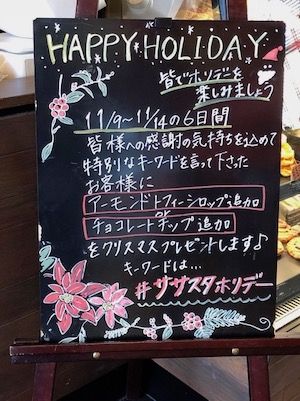 HAPPY HOLIDAY
皆でホリデーを
楽しみましょう
11/9～11/14の6日間
皆様への感謝の気持ちを込めて
特別なキーワードを言って下さった
お客様に
アーモンドトフィーシロップ追加
or
チョコレートチップ追加
をクリスマスプレゼントします♪
キーワードは…
#ササスタホリデー